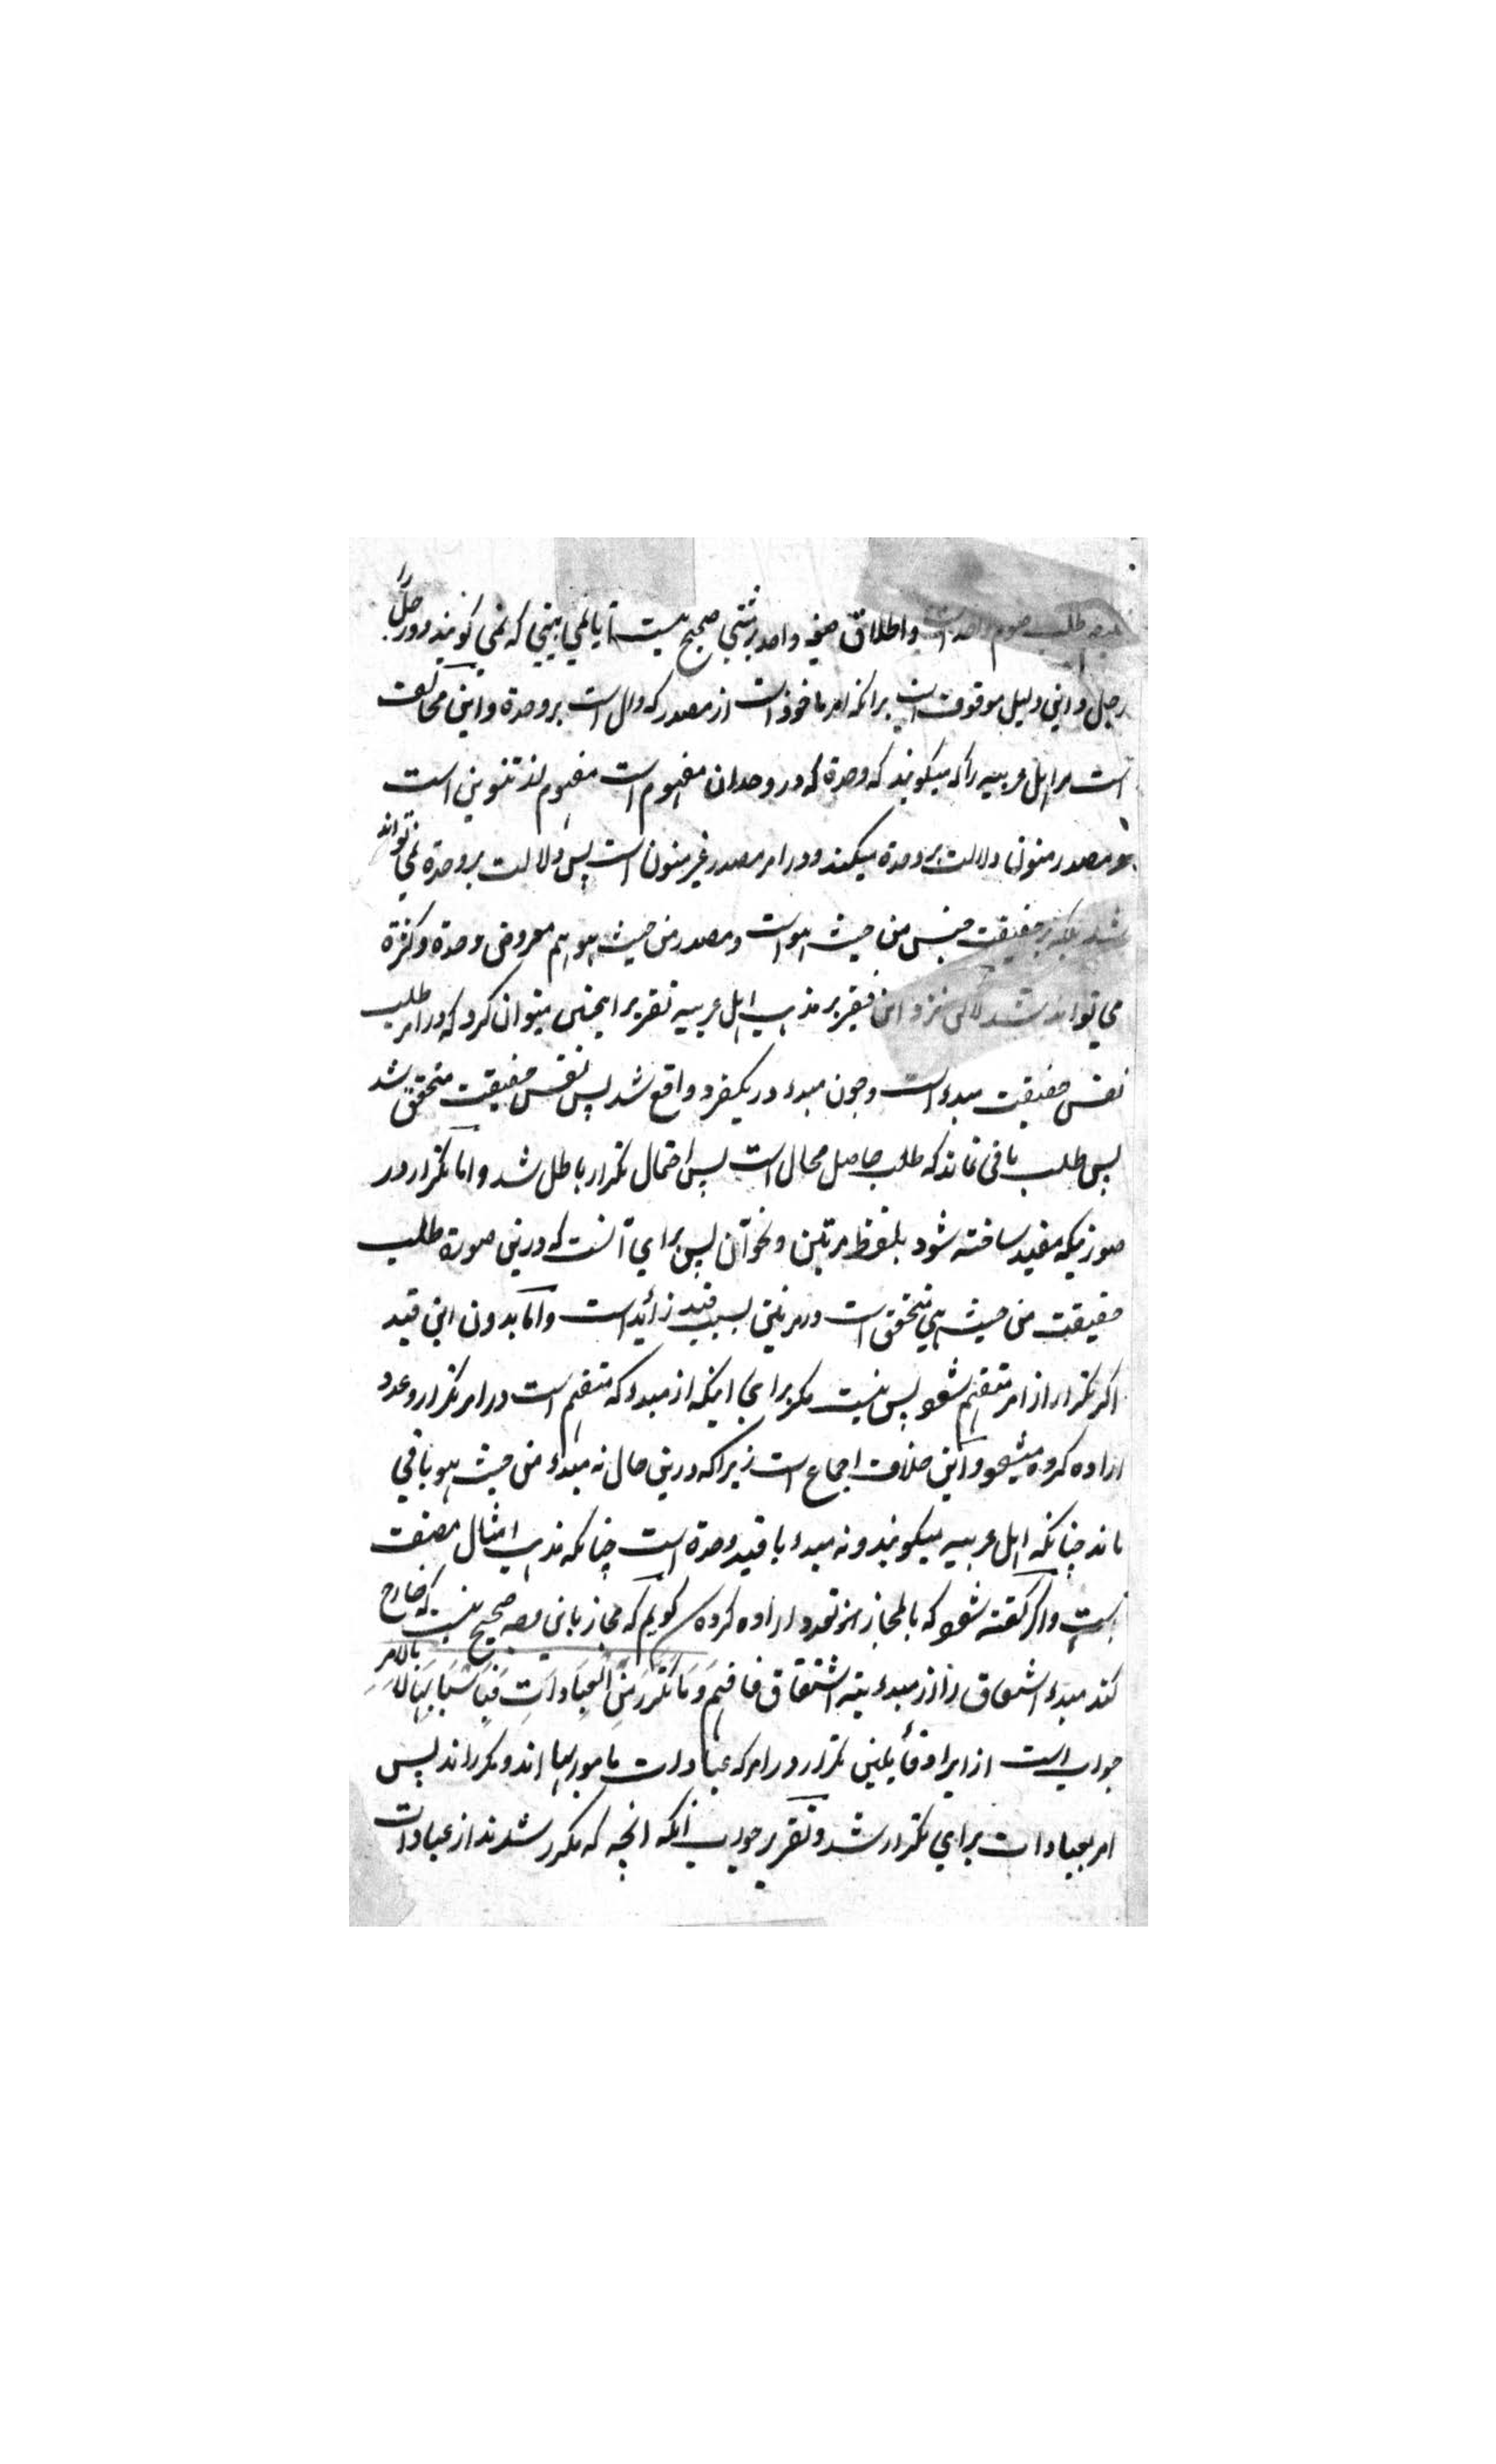 طلب صوم واحد است و اطلاق صیغه واحد بر مثنی صحیح نیست آیا نمی بینی که نمی کویند دو رجل را
رجل و این دلیل موقوفست برانکه امر ماخوذ است از مصدر که دال است بر وحدة و این مخالفت
است مر اهل عربیه را که میکویند که وحدة که در وحدان مفهوم است مفهوم از تنوین است
و مصدر منون دلالت بر وحدة میکند و در امر مصدر غیر منون است پس دلالت بر وحدة نمی تواند
شد بلکه بر حقیقت جنس من حیث هو است و مصدر من حیث هو هم معروض وحدة و کثرة
می تواند شد لاکن نزد این فقیر بر مذهب اهل عربیه تقریر اینچنین میتوان کرد که در امر طلب
نفس حقیقت مبدء است و چون مبدء در یکفرد واقع شد پس نفس حقیقت متحقق شد
پس طلب باقی نماند که طلب حاصل محال است پس احتمال تکرار باطل شد و اما تکرار در
صورتیکه مقید ساخته شود بلفظ مرتین و نحو آن پس برای آنست که درین صورة طلب
حقیقت من حیث هی متحقق است و مرتین بسبب قید زائد است و اما بدون این قید
اکر تکرار از امر متفهم شود پس نیست مکر برای اینکه از مبدء که متفهم است در امر تکرار و عدد
اراده کرده میشود و این خلاف اجماع است زیرا که درین حال نه مبدء من حیث هو باقی
ماند چنانکه اهل عربیه میکویند و نه مبدء با قید وحدة است چنانکه مذهب امثال مصنف
است و اکر کفته شود که بالمجاز تعدد اراده کرده کویم که مجاز صحیح نیست که خارج
کند مبدء اشتقاق را از مبدءیته اشتقاق فافهم وَمَا تَكَرَّرَ مِنَ الْعِبَادَاتِ فَبِأَسْبَابِهَا لَا بِالْأَمْرِ
جواب است از ایراد قائلین تکرار در امر که عبادات مامور بها اند و مکرر اند پس
امر بعبادات برای تکرار شد و تقریر جواب آنکه انچه که مکرر شدند از عبادات